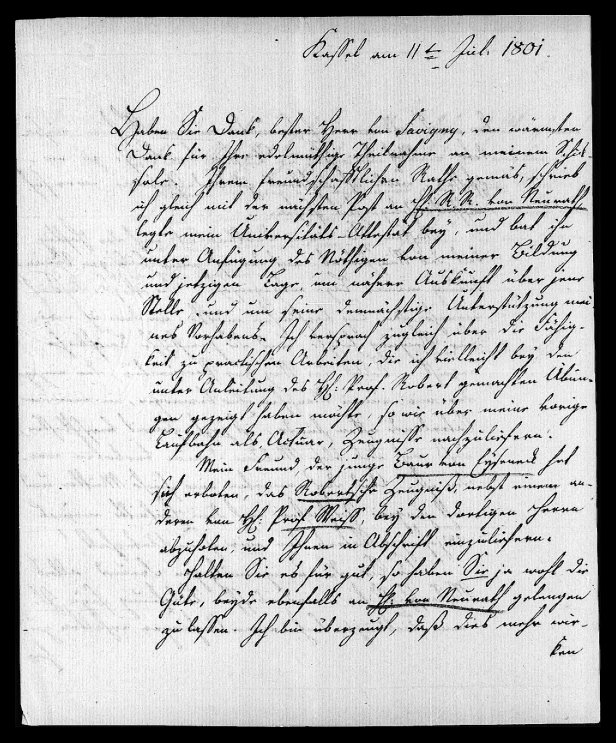 Kassel am 11t Jul. 1801.
Haben Sie Dank, bester Herr von Savigny, den wärmsten
Dank für Ihre edelmüthige Theilnahme an meinem Schik-
sale. Ihrem freundschaftlichen Rathe gemäs, schrieb
ich gleich mit der nächsten Post an H. R. R. von Neurath
legte mein Universitäts-Attestat bey, und bat ihn
unter Anfügung des Nöthigen von meiner Bildung
und jetzigen Lage, um nähere Auskunft über jene
Stelle und um seine demnächstige Unterstützung mei-
nes Vorhabens. Ich versprach zugleich über die Fähig-
keit zu practischen Arbeiten, die ich vielleicht bey den
unter Anleitung des H. Prof. Robert gemachten Übun-
gen gezeigt haben möchte, so wie über meine vorige
Laufbahn als Actuar, Zeugnisse nachzuliefern.
Mein Freund, der junge Baur von Eyseneck hat
sich erboten, das Robertsche Zeugniß, nebst einem an-
deren von H. Prof Weiss, bey den dortigen Herrn
abzuholen, und Ihnen in Abschrift einzuliefern.
Halten Sie es für gut, so haben Sie ja wohl die
Güte, beyde ebenfalls an H. von Neurath gelangen
zu lassen. Ich bin überzeugt, daß dies mehr wir-
ken